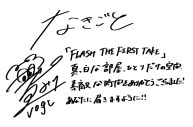 なきごと
「FLASH THE FIRST TAKE」
真っ白な部屋、ひとりだけの空間
素敵な時間をありがとうございました!
あなたに届きますように!!
vo.gt